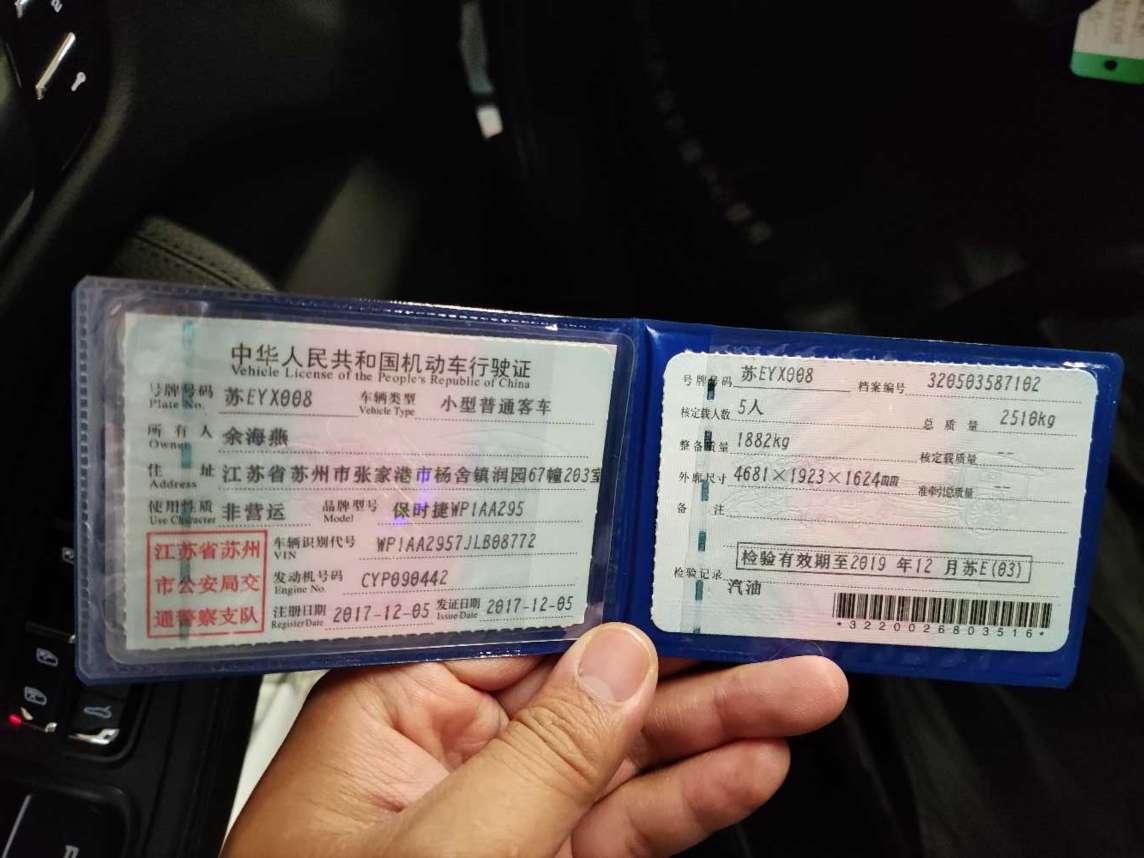 中华人民共和国机动车行驶证
Vehicle License of the People's Republic of China
号牌号码 苏EYX008 车辆类型 小型普通客车
Plate No. Vehicle Type
所有人 余海燕
Owner
住址 江苏省苏州市张家港市杨舍镇润园67幢203室
Address
使用性质 非营运 品牌型号 保时捷WP1AA295
Use Character Model
江苏省苏州
市公安局交
通警察支队
车辆识别代号 WP1AA2957JLB08772
VIN
发动机号码 CYP090442
Engine No.
注册日期 2017-12-05 发证日期 2017-12-05
Register Date Issue Date
号牌号码 苏EYX008 档案编号 320503587102
核定载人数 5人 总质量 2510kg
整备质量 1882kg 核定载质量 --
外廓尺寸 4681×1923×1624 准牵引总质量 --
备注
检验有效期至2019 年12 月苏E(03)
检验记录
汽油
*3220026803516*